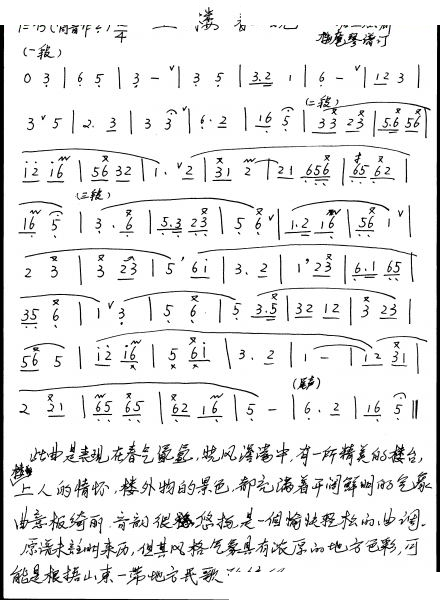 (一段)
0 3 | 6 5 | 3 - ˅ | 3 5 | 3.2 1 | 6 - ˅ | 12 3 |
(二段)
3 ˅ 5 | 2. 3 | 3 3 ˅ | 6. 2 | 16 5 | 33 23 | 5.6 56 |
12 16 | 56 32 | 1. ˅ 2 | 31 2 | 21 656 | 65 62 |
(三段)
16 5 | 3. 6 | 5.3 23 | 5 6 ˅ | 1.2 16 | 56 1 ˅ |
2 3 | 3 23 | 5 ' 61 | 3. 2 | 1 ' 23 | 6.1 65 |
35 6 | 1 ˅ 3 | 5 6 | 5 3.5 | 32 12 | 3 23 |
56 5 | 12 16 | 5 61 | 3. 2 | 1 - | 12 31 |
(尾声)
2 21 | 65 65 | 62 16 | 5 - | 6. 2 | 16 5 ||
此曲是表现在春气氤氲,晓风淡荡中,有一所精美的楼台,
楼上人的情怀,楼外物的景色,都充满着开阔鲜明的气象
曲意极绮丽,音韵很悠扬,是一個愉快轻松的曲调。
原谱未註明来历,但其风格气象具有浓厚的地方色彩,可
能是根据山东一带地方民歌